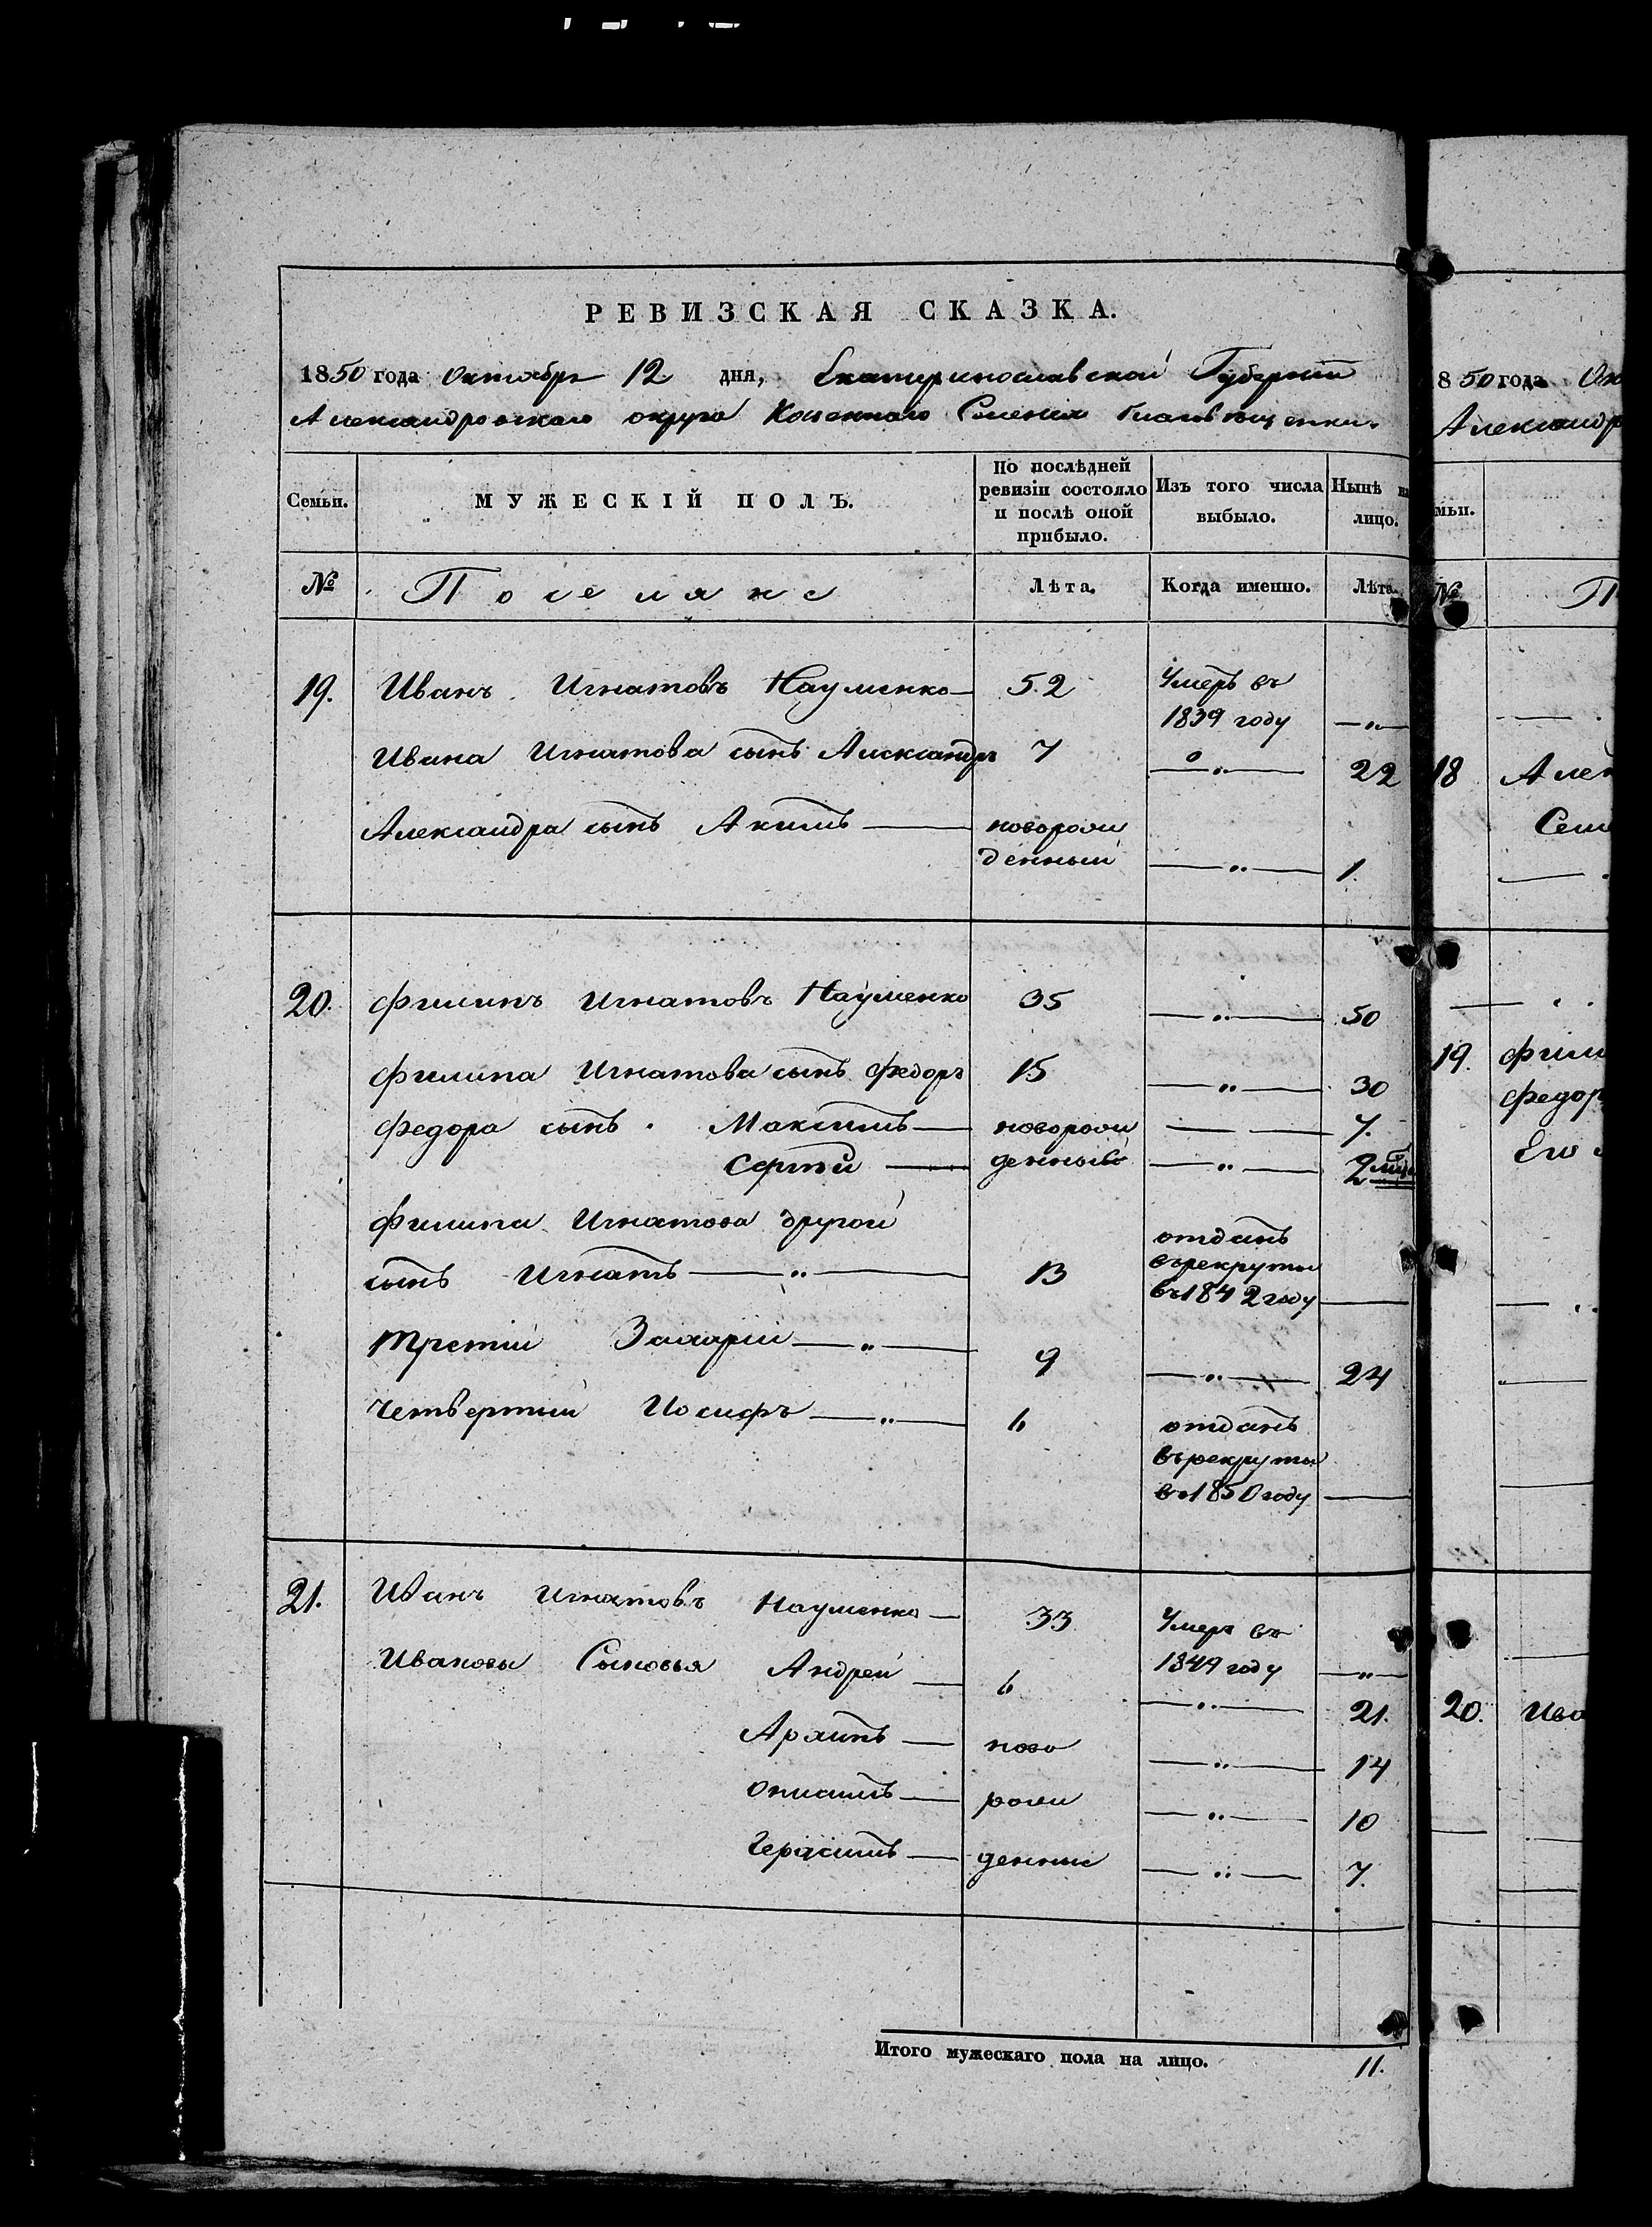 РЕВИЗСКАЯ СКАЗКА.
1850 года Октября 12 дня, Екатеринославской Губернии
Александровскаго округа Казеннаго Селения Благовѣщенки
Семьи. МУЖЕСКІЙ ПОЛЪ. По послѣдней ревизіи состояло и послѣ оной прибыло. Изъ того числа выбыло. Нынѣ на лицо.
№ Поселяне Лѣта. Когда именно. Лѣта.
19. Иванъ Игнатовъ Науменко 52 Умеръ въ
1839 году — „ —
Ивана Игнатова сынъ Александръ 7 — „ — 22
Александра сынъ Акимъ — новорож
денный — „ — 1.
20. Филипъ Игнатовъ Науменко 35 — „ — 50
Филипа Игнатова сынъ Федоръ 15 — „ — 30
Федора сынъ Максимъ — новорож — — 7.
Сергѣй — денный — „ — 2 мѣс
Филипа Игнатова другой
сынъ Игнатъ — „ — 13 отданъ
въ рекруты
въ 1842 году —
третій Захарій — „ — 9 — „ — 24
четвертый Иосифъ — „ — 6 отданъ
въ рекруты
въ 1850 году —
21. Иванъ Игнатовъ Науменко — 33 Умеръ въ
1849 году — „ —
Ивановы Сыновья Андрей — 6 — „ — 21.
Архипъ — ново — „ — 14
Онисимъ — рож — „ — 10
Герасимъ — денные — „ — 7.
Итого мужескаго пола на лицо. 11.
1850 года
Александр
мьи.
№ П
18
19. Фили
Федор
Его
20. Ива